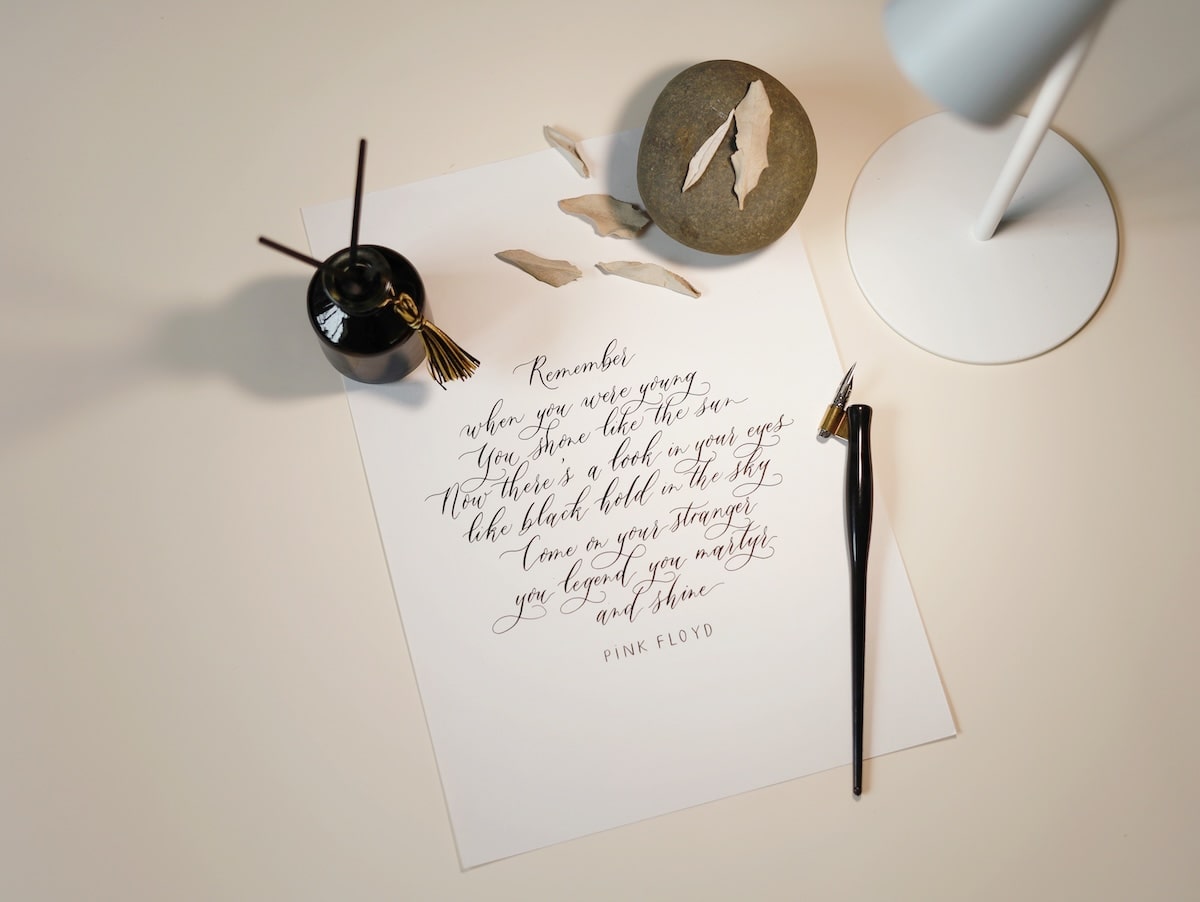 Remember
when you were young
You shone like the sun
Now there's a look in your eyes
like black hold in the sky
Come on your stranger
you legend you martyr
and shine
PINK FLOYD